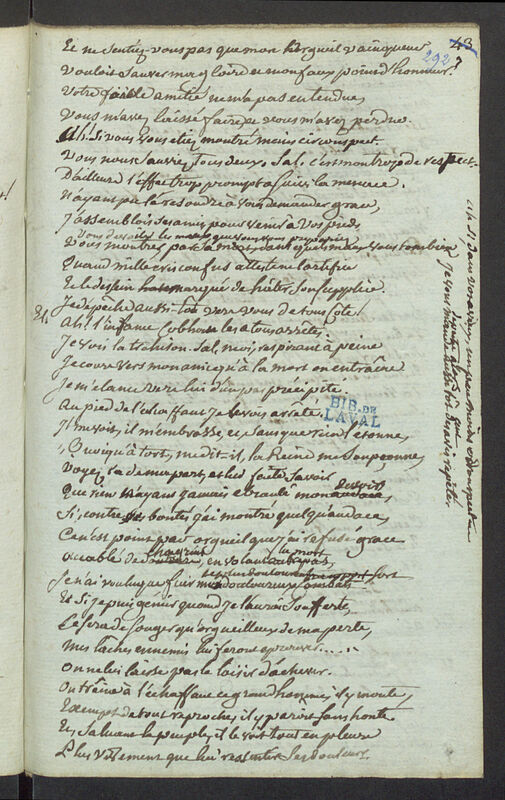 43
292
Et ne sentiez-vous pas que mon horgueil vainqueur
Vouloit sauver ma gloire et mon faux point d'honneur?
Votre faible amitié ne m'a pas entendue,
Vous m'avez laissé faire et vous m'avez perdue.
Ah! Si vous vous étiez montré moins circonspect
Vous nous sauviez tous deux. Sal. c'est mon trop de respect
D'ailleurs l'effet trop prompt a suivi la menace.
N'ayant pu la resoudre à vous demander grace,
J'assemblois ses amis pour venir à vos pieds,
Vous
Vous montrer
Quand mille avis confus attestent l'artifice
Et le dessein marqué de hâter son supplice
Je dépêche aussi-tôt vers vous de tous côtés
Et. Ah! l'infame Cobham les a tous arrêtés,
Je vois la trahison. Sal. moi, respirant à peine
Je cours vers mon ami qu'à la mort on entraîne
Je m'élance vers lui d'un pas précipité.
Au pied de l'échaffaut je le vois arrêté.
Il me voit, il m'embrasse, et sans que rien l'étonne,
Quoiqu'à tort, me dit-il, la Reine me soupçonne,
Voyez-la de ma part, et lui faites savoir
Que rien n'ayant jamais ébranlé mon devoir
Si, contre ses bontés j'ai montré quelqu'audace,
Ce n'est point par orgueil que j'ai refusé grace
Accablé de chagrins, en volant à la mort
Je n'ai voulu que fuir
Et si je puis gémir quand je l'aurai soufferte,
Ce sera de songer qu'orgueilleux de ma perte,
Mes lâches ennemis lui feront éprouver.....
On ne lui laisse pas le loisir d'achever.
On traîne à l'échaffaut ce grand homme, il y monte,
Exempt de tout reproche, il y paroît sans honte
Et, saluant le peuple, il le voit tout en pleurs
Plus vivement que lui ressentir ses douleurs.
BIB. DE
LAVAL
Ah! si dans vos avis, un peu moins circonspect